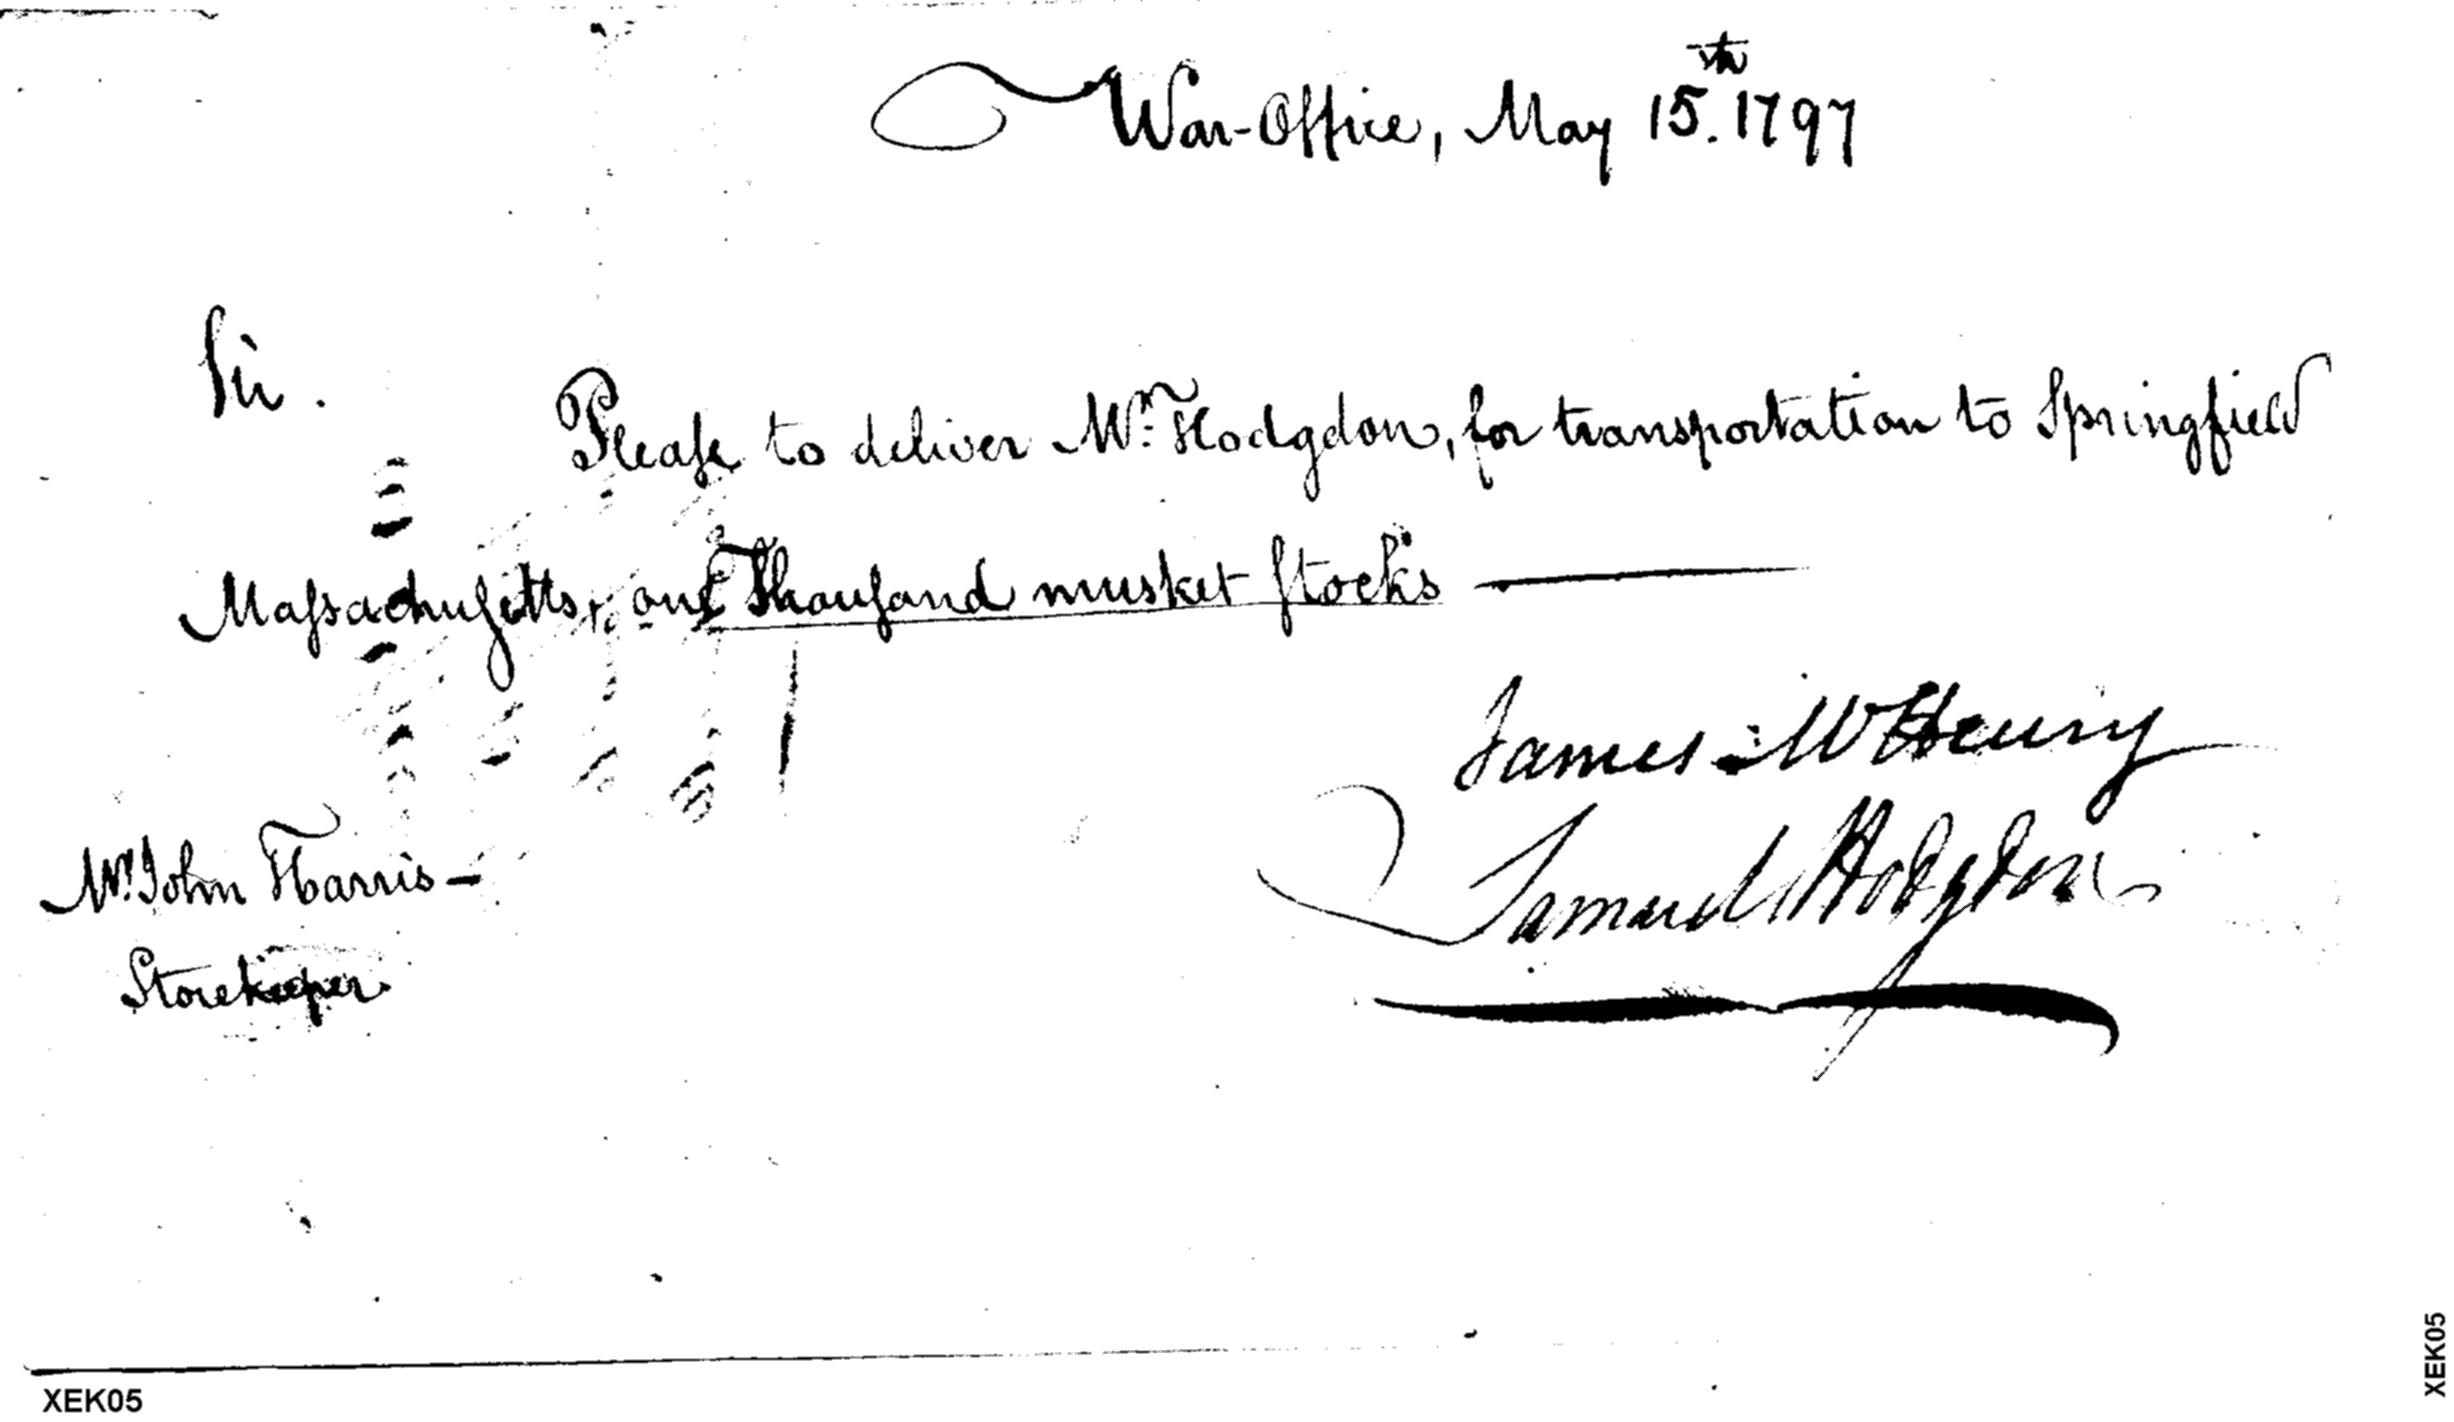 War-Office, May 15.th 1797
Sir.
Please to deliver Mr. Hodgdon, for transportation to Springfield
Massachusetts, one Thousand musket stocks
James McHenry
Samuel Hodgdon
Mr. John Harris
Storekeeper.
XEK05
XEK05